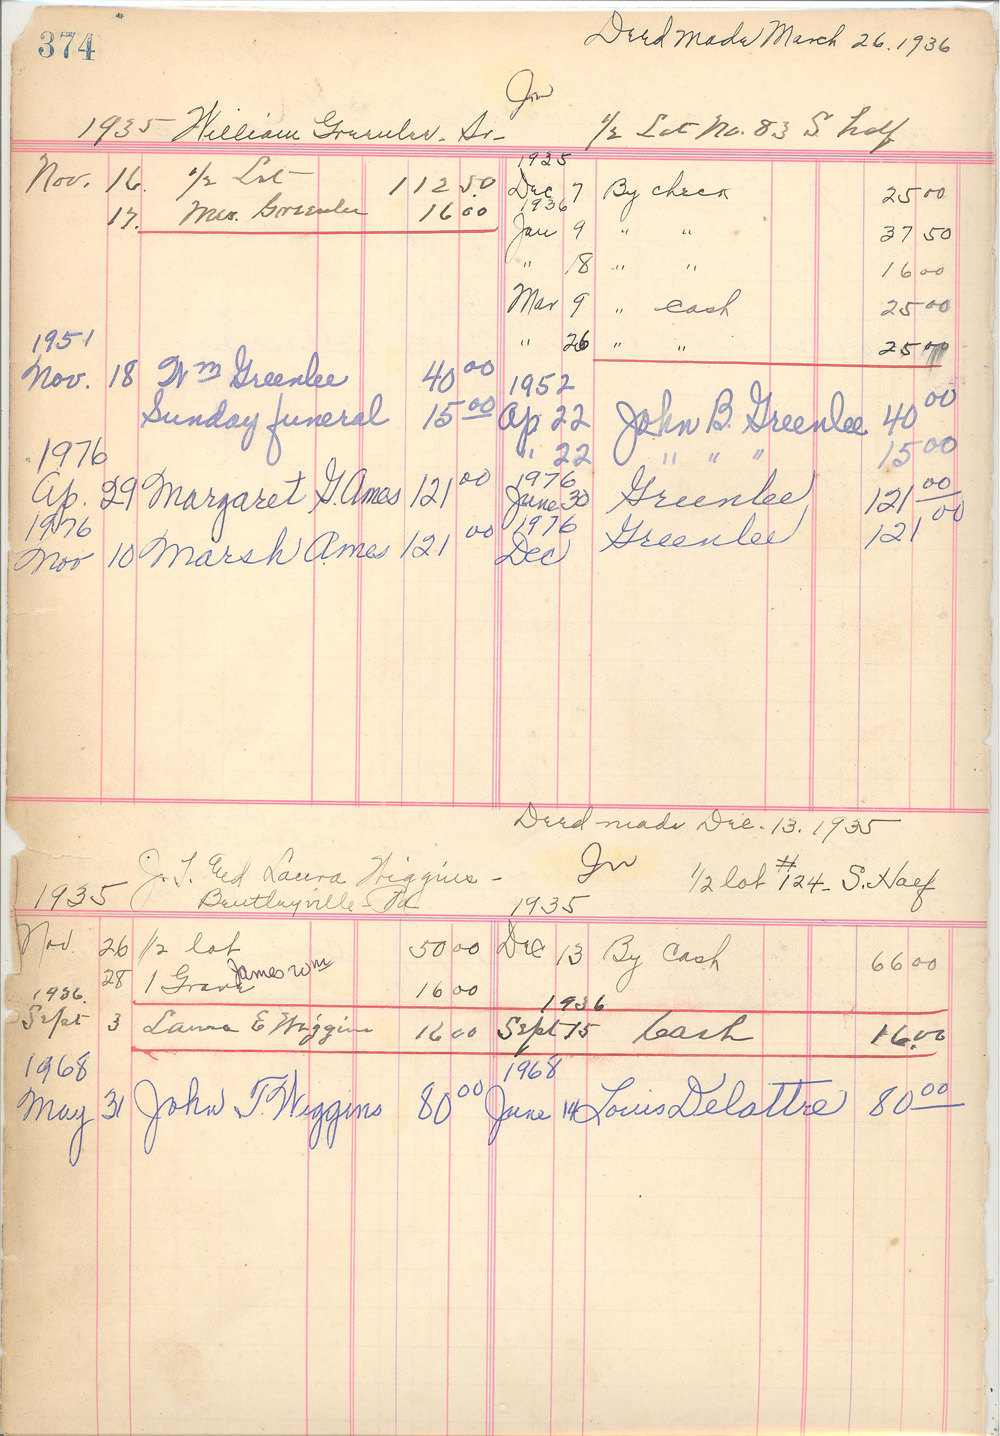 374
Deed made March 26. 1936
Jn
1935 William Greenlee. Sr- 1/2 Lot No. 83 S half
1935
Nov. 16. 1/2 Lot 112 50 Dec 7 By check 25 00
1936
17. Mrs. Greenlee 16 00 Jan 9 " " 37 50
" 18 " " 16 00
Mar 9 " cash 25 00
" 26 " " 25 00
1951
Nov. 18 Wm Greenlee 40 00 1952
Sunday funeral 15 00 Ap 22 John B. Greenlee 40 00
" 22 " " " 15 00
1976 1976
Ap. 29 Margaret G. Ames 121 00 June 30 Greenlee 121 00
1976 1976
Nov 10 Marsh Ames 121 00 Dec Greenlee 121 00
Deed made Dec. 13. 1935
Jn
1935 J. T. Laura Wiggins - 1/2 lot #124- S. Half
Bentleyville Pa 1935
Nov. 26 1/2 lot 50 00 Dec 13 By Cash 66 00
28 1 Grave James Wm 16 00
1936. 1936
Sept 3 Laura E Wiggins 16 00 Sept 15 Cash 16.00
1968 1968
May 31 John T. Wiggins 80 00 June 14 Louis Delattre 80 00